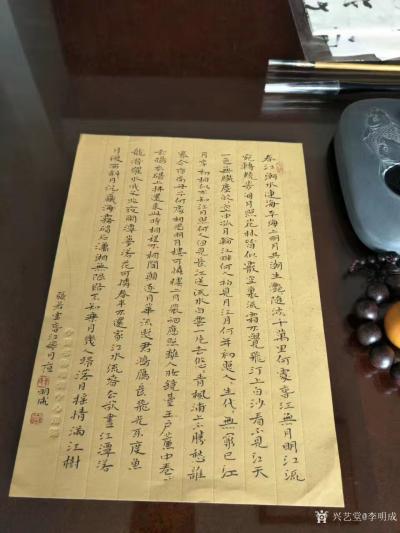 春江潮水連海平海上明月共潮生灧隨波千萬里何處春江無月明江流
宛轉繞芳甸月照花林皆似霰空裏流霜不覺飛汀上白沙看不見江天
一色無纖塵皎空中孤月輪江畔何人初見月江月何年初照人人生代無窮已江
月年相似不知江月待何人但見長江送流水白雲一片去悠青楓浦上不勝愁誰
家今夜扁舟子何處相思明月樓可憐樓上月裴回應照離人妝鏡臺玉戶簾中卷不
去搗衣砧上拂還來此時相望不相聞願逐月華流照君鴻雁長飛光不度魚
龍潛躍水成文昨夜閑潭夢落花可憐春半不還家江水流春去欲盡江潭落
月復西斜月沉藏海霧碣石瀟湘無限路不知乘月幾人歸落月搖情滿江樹
張若虛春江花月夜 明成
兴艺堂@李明成